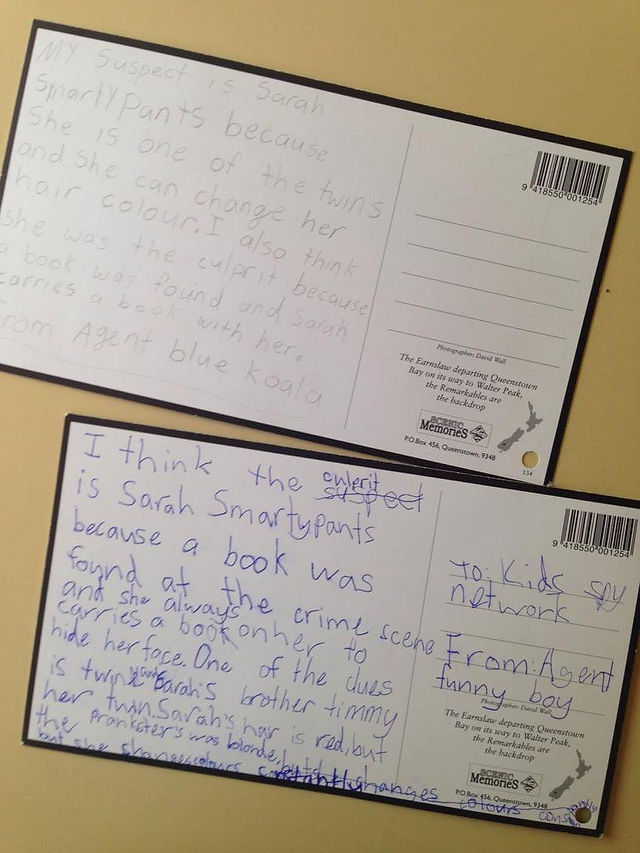 MY Suspect is Sarah
SmartYpants because
She is one of the twins
and she can change her
hair colour. I also think
she was the culprit because
a book was found and Sarah
carries a book with her.
From Agent blue Koala
9 418550 001254
Photographer: David Wall
The Earnslaw departing Queenstown
Bay on its way to Walter Peak,
the Remarkables are
the backdrop
SCENIC
MEMORIES
P.O.Box 456, Queenstown, 9348
134
I think the culprit
suspect
is Sarah Smartypants
because a book was
found at the crime scene
and she always
carries a book on her to
hide her face. One of the clues
is twin and Sarah's brother timmy
her twin. Sarah's hair is red, but
the Prankster's was blonde,
but she changes colours
changes colours
9 418550 001254
To: Kids spy
network
From: Agent
funny boy
Photographer: David Wall
The Earnslaw departing Queenstown
Bay on its way to Walter Peak,
the Remarkables are
the backdrop
SCENIC
MEMORIES
P.O.Box 456, Queenstown, 9348